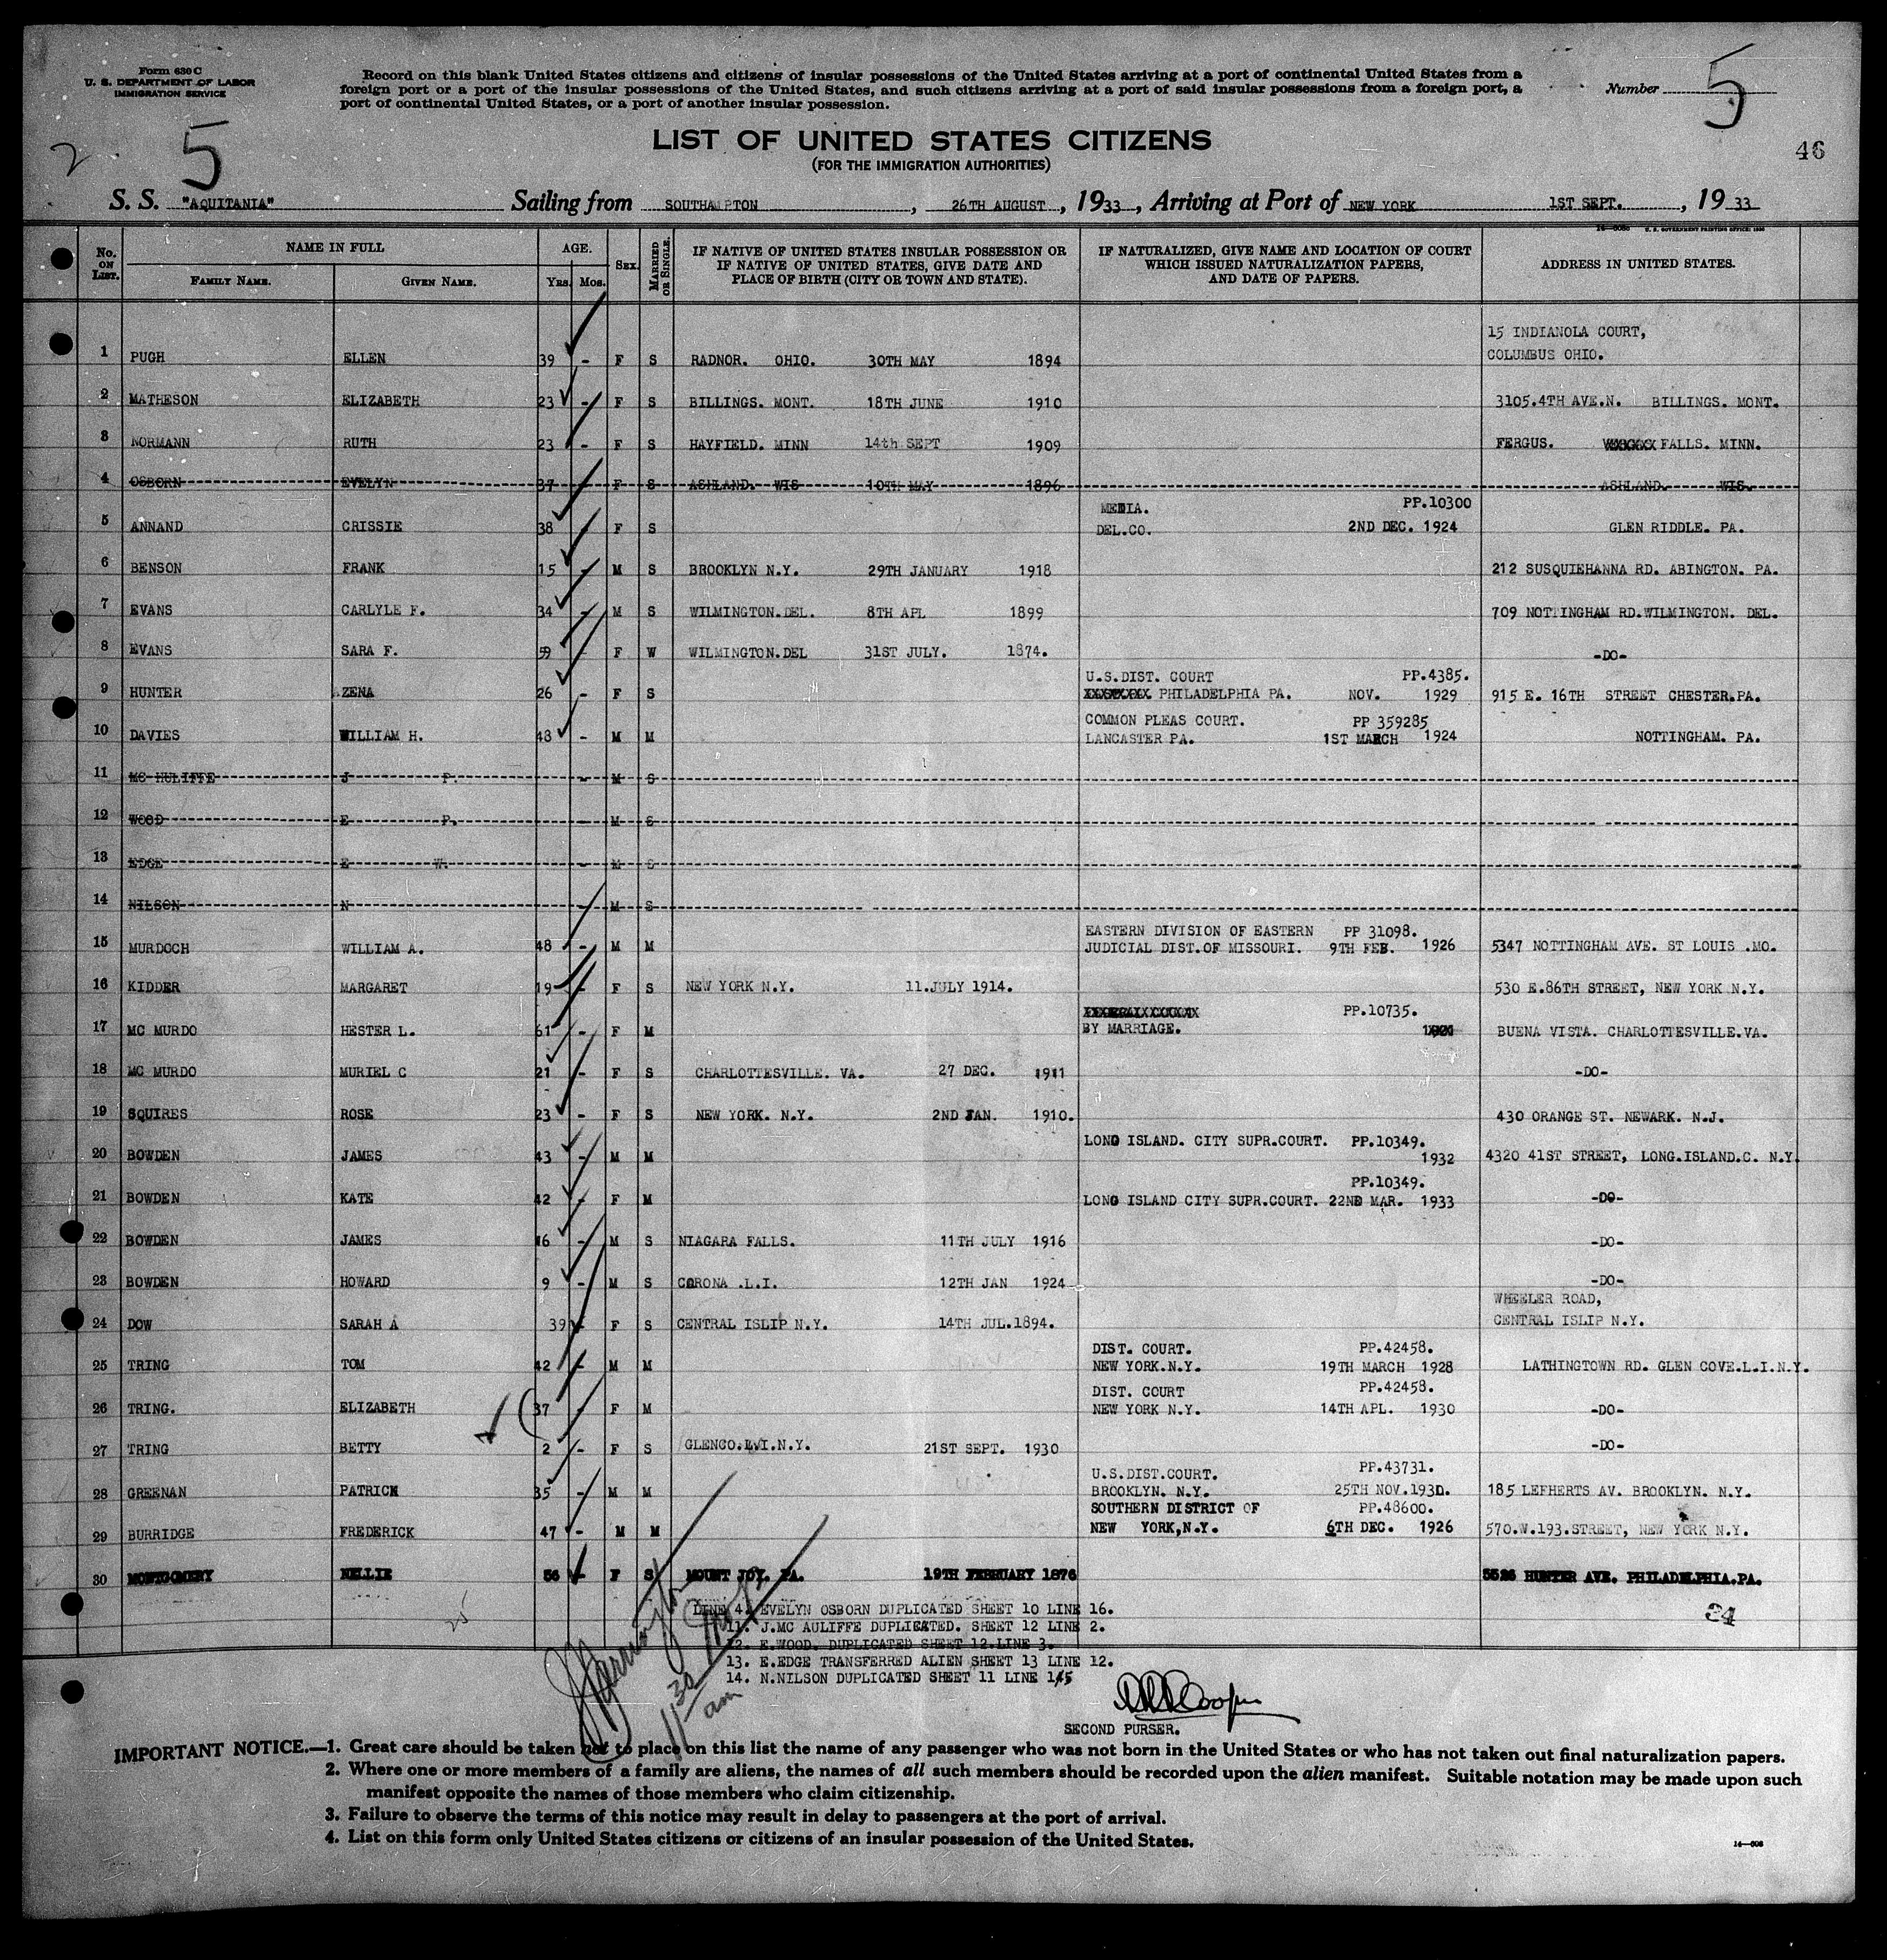 Form 630 C
U. S. DEPARTMENT OF LABOR
IMMIGRATION SERVICE
Record on this blank United States citizens and citizens of insular possessions of the United States arriving at a port of continental United States from a
foreign port or a port of the insular possessions of the United States, and such citizens arriving at a port of said insular possessions from a foreign port, a
port of continental United States, or a port of another insular possession.
Number 5
2 5
LIST OF UNITED STATES CITIZENS
(FOR THE IMMIGRATION AUTHORITIES)
46
S. S. "AQUITANIA" Sailing from SOUTHAMPTON, 26TH AUGUST, 1933, Arriving at Port of NEW YORK 1ST SEPT., 1933
No. ON LIST. NAME IN FULL FAMILY NAME. GIVEN NAME. AGE. Yrs. Mos. SEX. MARRIED OR SINGLE. IF NATIVE OF UNITED STATES INSULAR POSSESSION OR IF NATIVE OF UNITED STATES, GIVE DATE AND PLACE OF BIRTH (CITY OR TOWN AND STATE). IF NATURALIZED, GIVE NAME AND LOCATION OF COURT WHICH ISSUED NATURALIZATION PAPERS, AND DATE OF PAPERS. ADDRESS IN UNITED STATES.
15 INDIANOLA COURT,
1 PUGH ELLEN 39 - F S RADNOR. OHIO. 30TH MAY 1894 COLUMBUS OHIO.
2 MATHESON ELIZABETH 23 - F S BILLINGS. MONT. 18TH JUNE 1910 3105.4TH AVE.N. BILLINGS. MONT.
3 NORMANN RUTH 23 - F S HAYFIELD. MINN 14th SEPT 1909 FERGUS. FALLS. MINN.
4 OSBORN EVELYN 37 F S ASHLAND. WIS 10TH MAY 1896 ASHLAND. WIS.
MEDIA. PP.10300
5 ANNAND CRISSIE 38 F S DEL.CO. 2ND DEC. 1924 GLEN RIDDLE. PA.
6 BENSON FRANK 15 - M S BROOKLYN N.Y. 29TH JANUARY 1918 212 SUSQUIEHANNA RD. ABINGTON. PA.
7 EVANS CARLYLE F. 34 - M S WILMINGTON.DEL. 8TH APL 1899 709 NOTTINGHAM RD.WILMINGTON. DEL.
8 EVANS SARA F. 59 F W WILMINGTON.DEL 31ST JULY. 1874. -DO-
U.S.DIST. COURT PP.4385.
9 HUNTER ZENA 26 - F S PHILADELPHIA PA. NOV. 1929 915 E. 16TH STREET CHESTER.PA.
COMMON PLEAS COURT. PP 359285
10 DAVIES WILLIAM H. 48 - M M LANCASTER PA. 1ST MARCH 1924 NOTTINGHAM. PA.
11 MC HULIFFE J P. - M S
12 WOOD E P. M S
13 EDGE E W. - M S
14 NILSON N - M S
EASTERN DIVISION OF EASTERN PP 31098.
15 MURDOCH WILLIAM A. 48 - M M JUDICIAL DIST.OF MISSOURI. 9TH FEB. 1926 5347 NOTTINGHAM AVE. ST LOUIS .MO.
16 KIDDER MARGARET 19 - F S NEW YORK N.Y. 11.JULY 1914. 530 E.86TH STREET, NEW YORK N.Y.
PP.10735.
17 MC MURDO HESTER L. 61 - F M BY MARRIAGE. BUENA VISTA. CHARLOTTESVILLE.VA.
18 MC MURDO MURIEL C 21 - F S CHARLOTTESVILLE. VA. 27 DEC. 1911 -DO-
19 SQUIRES ROSE 23 - F S NEW YORK. N.Y. 2ND JAN. 1910. 430 ORANGE ST. NEWARK. N.J.
LONG ISLAND. CITY SUPR.COURT. PP.10349.
20 BOWDEN JAMES 43 - M M 1932 4320 41ST STREET, LONG.ISLAND.C. N.Y.
PP.10349.
21 BOWDEN KATE 42 - F M LONG ISLAND CITY SUPR.COURT. 22ND MAR. 1933 -DO-
22 BOWDEN JAMES 16 - M S NIAGARA FALLS. 11TH JULY 1916 -DO-
23 BOWDEN HOWARD 9 - M S CORONA .L.I. 12TH JAN 1924 -DO-
WHEELER ROAD,
24 DOW SARAH A 39 F S CENTRAL ISLIP N.Y. 14TH JUL.1894. CENTRAL ISLIP N.Y.
DIST. COURT. PP.42458.
25 TRING TOM 42 - M M NEW YORK.N.Y. 19TH MARCH 1928 LATHINGTOWN RD. GLEN COVE.L.I.N.Y.
DIST. COURT PP.42458.
26 TRING. ELIZABETH 37 - F M NEW YORK N.Y. 14TH APL. 1930 -DO-
27 TRING BETTY 2 - F S GLENCO.L.I.N.Y. 21ST SEPT. 1930 -DO-
U.S.DIST.COURT. PP.43731.
28 GREENAN PATRICK 35 - M M BROOKLYN. N.Y. 25TH NOV.1930. 185 LEFHERTS AV. BROOKLYN. N.Y.
SOUTHERN DISTRICT OF PP.48600.
29 BURRIDGE FREDERICK 47 - M M NEW YORK,N.Y. 6TH DEC. 1926 570.W.193.STREET, NEW YORK N.Y.
30 MONTGOMERY NELLIE 56 - F S MOUNT JOY. PA. 19TH FEBRUARY 1876 5526 HUNTER AVE. PHILADELPHIA.PA.
LINE 4. EVELYN OSBORN DUPLICATED SHEET 10 LINE 16.
11. J.MC AULIFFE DUPLICATED. SHEET 12 LINE 2.
12. E.WOOD. DUPLICATED SHEET 12.LINE 3.
13. E.EDGE TRANSFERRED ALIEN SHEET 13 LINE 12.
14. N.NILSON DUPLICATED SHEET 11 LINE 15
25
34
11 30 am
SECOND PURSER.
IMPORTANT NOTICE.—1. Great care should be taken not to place on this list the name of any passenger who was not born in the United States or who has not taken out final naturalization papers.
2. Where one or more members of a family are aliens, the names of all such members should be recorded upon the alien manifest. Suitable notation may be made upon such
manifest opposite the names of those members who claim citizenship.
3. Failure to observe the terms of this notice may result in delay to passengers at the port of arrival.
4. List on this form only United States citizens or citizens of an insular possession of the United States.